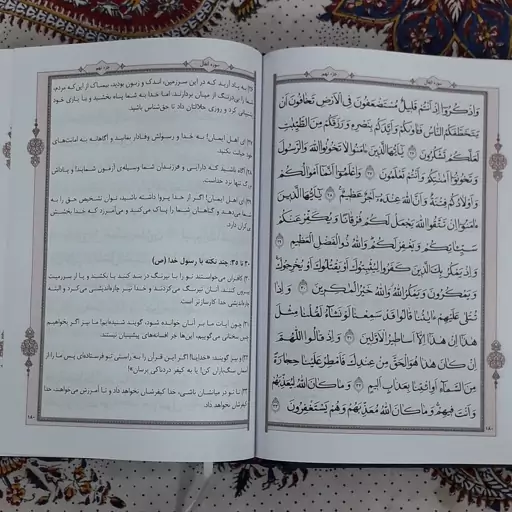 وَاذْكُرُوا إِذْ أَنْتُمْ قَلِيلٌ مُسْتَضْعَفُونَ فِي الْأَرْضِ تَخَافُونَ أَنْ
يَتَخَطَّفَكُمُ النَّاسُ فَآوَاكُمْ وَأَيَّدَكُمْ بِنَصْرِهِ وَرَزَقَكُمْ مِنَ الطَّيِّبَاتِ
لَعَلَّكُمْ تَشْكُرُونَ ﴿۲۶﴾ يَا أَيُّهَا الَّذِينَ آمَنُوا لَا تَخُونُوا اللَّهَ وَالرَّسُولَ
وَتَخُونُوا أَمَانَاتِكُمْ وَأَنْتُمْ تَعْلَمُونَ ﴿۲۷﴾ وَاعْلَمُوا أَنَّمَا أَمْوَالُكُمْ
وَأَوْلَادُكُمْ فِتْنَةٌ وَأَنَّ اللَّهَ عِنْدَهُ أَجْرٌ عَظِيمٌ ﴿۲۸﴾ يَا أَيُّهَا الَّذِينَ
آمَنُوا إِنْ تَتَّقُوا اللَّهَ يَجْعَلْ لَكُمْ فُرْقَانًا وَيُكَفِّرْ عَنْكُمْ
سَيِّئَاتِكُمْ وَيَغْفِرْ لَكُمْ وَاللَّهُ ذُو الْفَضْلِ الْعَظِيمِ ﴿۲۹﴾
وَإِذْ يَمْكُرُ بِكَ الَّذِينَ كَفَرُوا لِيُثْبِتُوكَ أَوْ يَقْتُلُوكَ أَوْ يُخْرِجُوكَ
وَيَمْكُرُونَ وَيَمْكُرُ اللَّهُ وَاللَّهُ خَيْرُ الْمَاكِرِينَ ﴿۳۰﴾ وَإِذَا
تُتْلَى عَلَيْهِمْ آيَاتُنَا قَالُوا قَدْ سَمِعْنَا لَوْ نَشَاءُ لَقُلْنَا مِثْلَ
هَذَا إِنْ هَذَا إِلَّا أَسَاطِيرُ الْأَوَّلِينَ ﴿۳۱﴾ وَإِذْ قَالُوا اللَّهُمَّ
إِنْ كَانَ هَذَا هُوَ الْحَقَّ مِنْ عِنْدِكَ فَأَمْطِرْ عَلَيْنَا حِجَارَةً
مِنَ السَّمَاءِ أَوِ ائْتِنَا بِعَذَابٍ أَلِيمٍ ﴿۳۲﴾ وَمَا كَانَ اللَّهُ لِيُعَذِّبَهُمْ
وَأَنْتَ فِيهِمْ وَمَا كَانَ اللَّهُ مُعَذِّبَهُمْ وَهُمْ يَسْتَغْفِرُونَ ﴿۳۳﴾
۱۸۰
۲۶) به یاد آرید که در این سرزمین، اندک و زبون بودید، بیمناک از این‌که مردم،
شما را بی‌درنگ از میان بردارند، اما خدا به شما پناه بخشید و با یاری خود
پشتیبانی کرد و روزی حلالتان داد تا حق‌شناس باشید.
۲۷) ای اهل ایمان! به خدا و رسولش وفادار بمانید و آگاهانه به امانت‌های
خود خیانت نکنید.
۲۸) آگاه باشید که دارایی و فرزندان شما وسیله‌ی آزمون شمایند! و پاداش
بزرگ تنها نزد خداست.
۲۹) ای اهل ایمان! اگر از خدا پروا داشته باشید، توان تشخیص حق را به
شما می‌دهد و گناهان شما را پاک می‌کند و می‌آمرزد که خدا بخششی
بی‌کران دارد.
۳۰ تا ۳۵: چند نکته با رسول خدا (ص)
۳۰) کافران می‌خواستند تو را با نیرنگ در بند کنند یا بکشند و یا از سرزمینت
بیرون کنند. آنان نیرنگ می‌کردند و خدا نیز چاره‌اندیشی می‌کرد و البته
چاره‌اندیشی خدا کارسازتر است.
۳۱) چون آیات ما بر آنان خوانده شود، گویند شنیده‌ایم! ما نیز اگر بخواهیم
چنین سخنی می‌گوییم، این‌ها جز افسانه‌های پیشینیان نیست.
۳۲) و نیز گویند: «خدایا! اگر این قرآن را به راستی تو فرستاده‌ای پس ما را از
آسمان سنگ‌باران کن! یا به کیفر دردناکی برسان!»
۳۳) تا تو در میانشان باشی، خدا کیفرشان نخواهد داد و تا آمرزش می‌خواهند، خدا
کیفرشان نخواهد داد.
۱۸۰